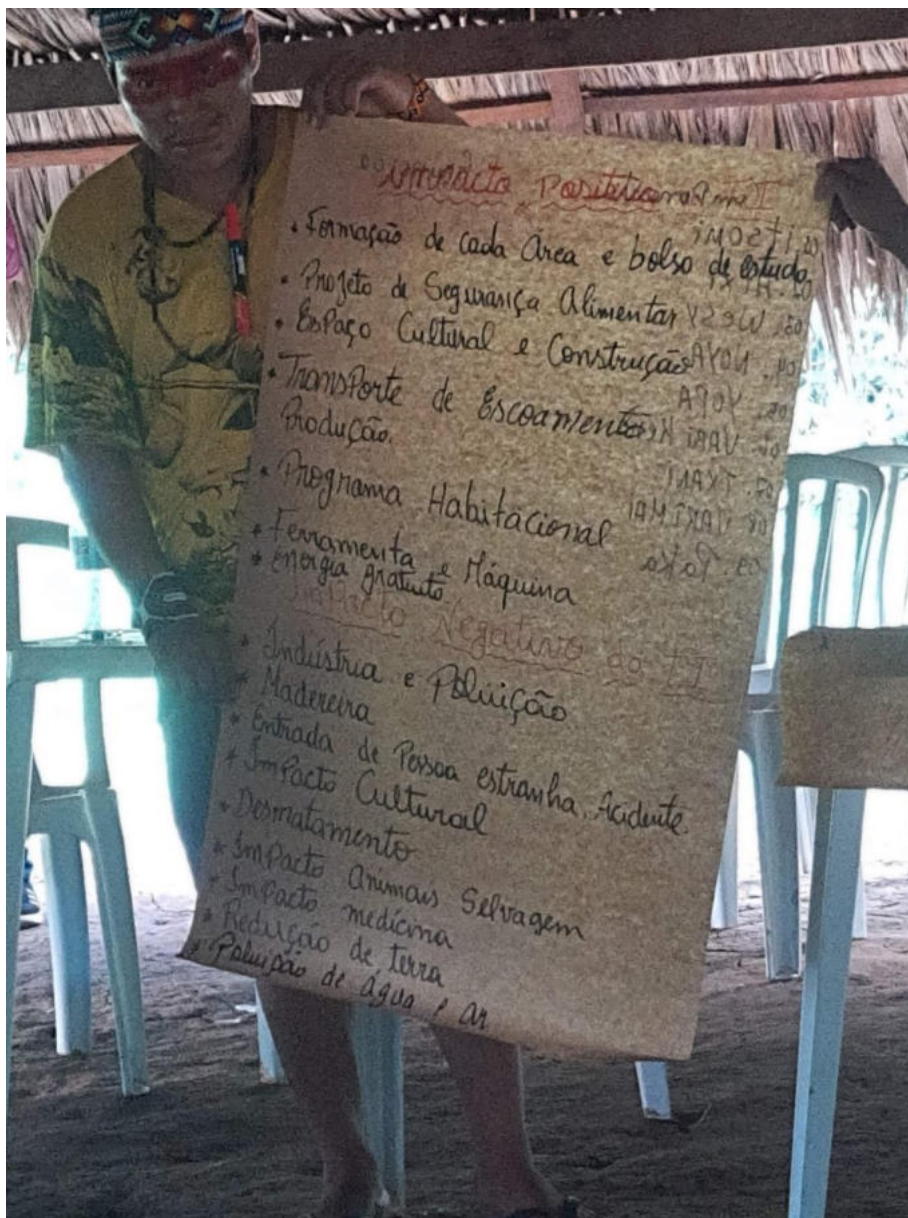 Impacto Positivo
• Formação de cada Área e bolso de estudo
• Projeto de Segurança Alimentar
• Espaço Cultural e Construção
• Transporte de Escoamento
Produção.
• Programa Habitacional
• Ferramenta e Máquina
• Energia gratuito
Impacto Negativo ao TI
• Indústria e Poluição
• Madereira
• Entrada de Pessoa estranha, Acidente.
• Impacto Cultural
• Desmatamento
• Impacto animais Selvagem
• Impacto medicina
• Redução de terra
• Poluição de água e ar